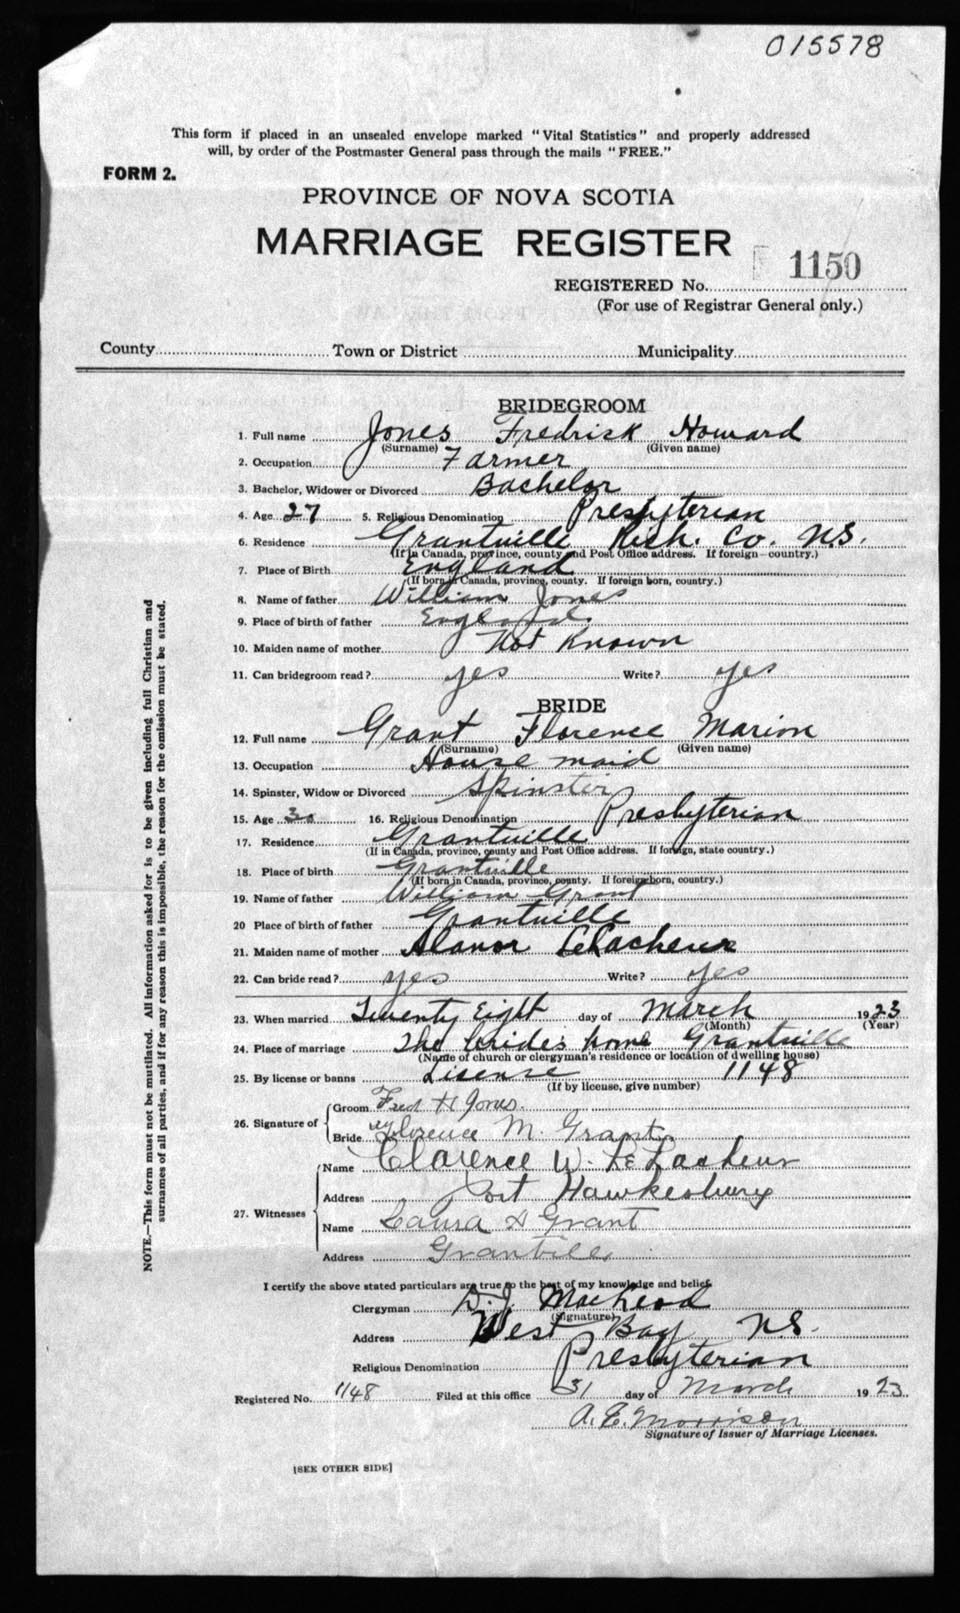 015578
This form if placed in an unsealed envelope marked "Vital Statistics" and properly addressed
will, by order of the Postmaster General pass through the mails "FREE."
FORM 2.
PROVINCE OF NOVA SCOTIA
MARRIAGE REGISTER
1150
REGISTERED No.
(For use of Registrar General only.)
County Town or District Municipality
BRIDEGROOM
1. Full name Jones Fredrick Howard
(Surname) (Given name)
2. Occupation Farmer
3. Bachelor, Widower or Divorced Bachelor
4. Age 27 5. Religious Denomination Presbyterian
6. Residence Grantville Rich. Co. N.S.
(If in Canada, province, county and Post Office address. If foreign—country.)
7. Place of Birth England
(If born in Canada, province, county. If foreign born, country.)
8. Name of father William Jones
9. Place of birth of father England
10. Maiden name of mother Not Known
11. Can bridegroom read? yes Write? yes
BRIDE
12. Full name Grant Florence Marion
(Surname) (Given name)
13. Occupation House maid
14. Spinster, Widow or Divorced Spinster
15. Age 30 16. Religious Denomination Presbyterian
17. Residence Grantville
(If in Canada, province, county and Post Office address. If foreign, state country.)
18. Place of birth Grantville
(If born in Canada, province, county. If foreign born, country.)
19. Name of father William Grant
20 Place of birth of father Grantville
21. Maiden name of mother Alanor LeLacheur
22. Can bride read? yes Write? yes
23. When married Twenty Eight day of March 1923
(Month) (Year)
24. Place of marriage The bride's home Grantville
(Name of church or clergyman's residence or location of dwelling house)
25. By license or banns Lisense 1148
(If by license, give number)
26. Signature of
Groom Fred H Jones.
Bride Florence M. Grant
27. Witnesses
Name Clarence W. LeLacheur
Address Port Hawkesbury
Name Laura A Grant
Address Grantville
I certify the above stated particulars are true to the best of my knowledge and belief.
Clergyman D. J. MacLeod
(Signature)
Address West Bay N.S.
Religious Denomination Presbyterian
Registered No. 1148 Filed at this office 31 day of March 1923
A. E. Morrison
Signature of Issuer of Marriage Licenses.
[SEE OTHER SIDE]
NOTE.—This form must not be mutilated. All information asked for is to be given including full Christian and
surnames of all parties, and if for any reason this is impossible, the reason for the omission must be stated.